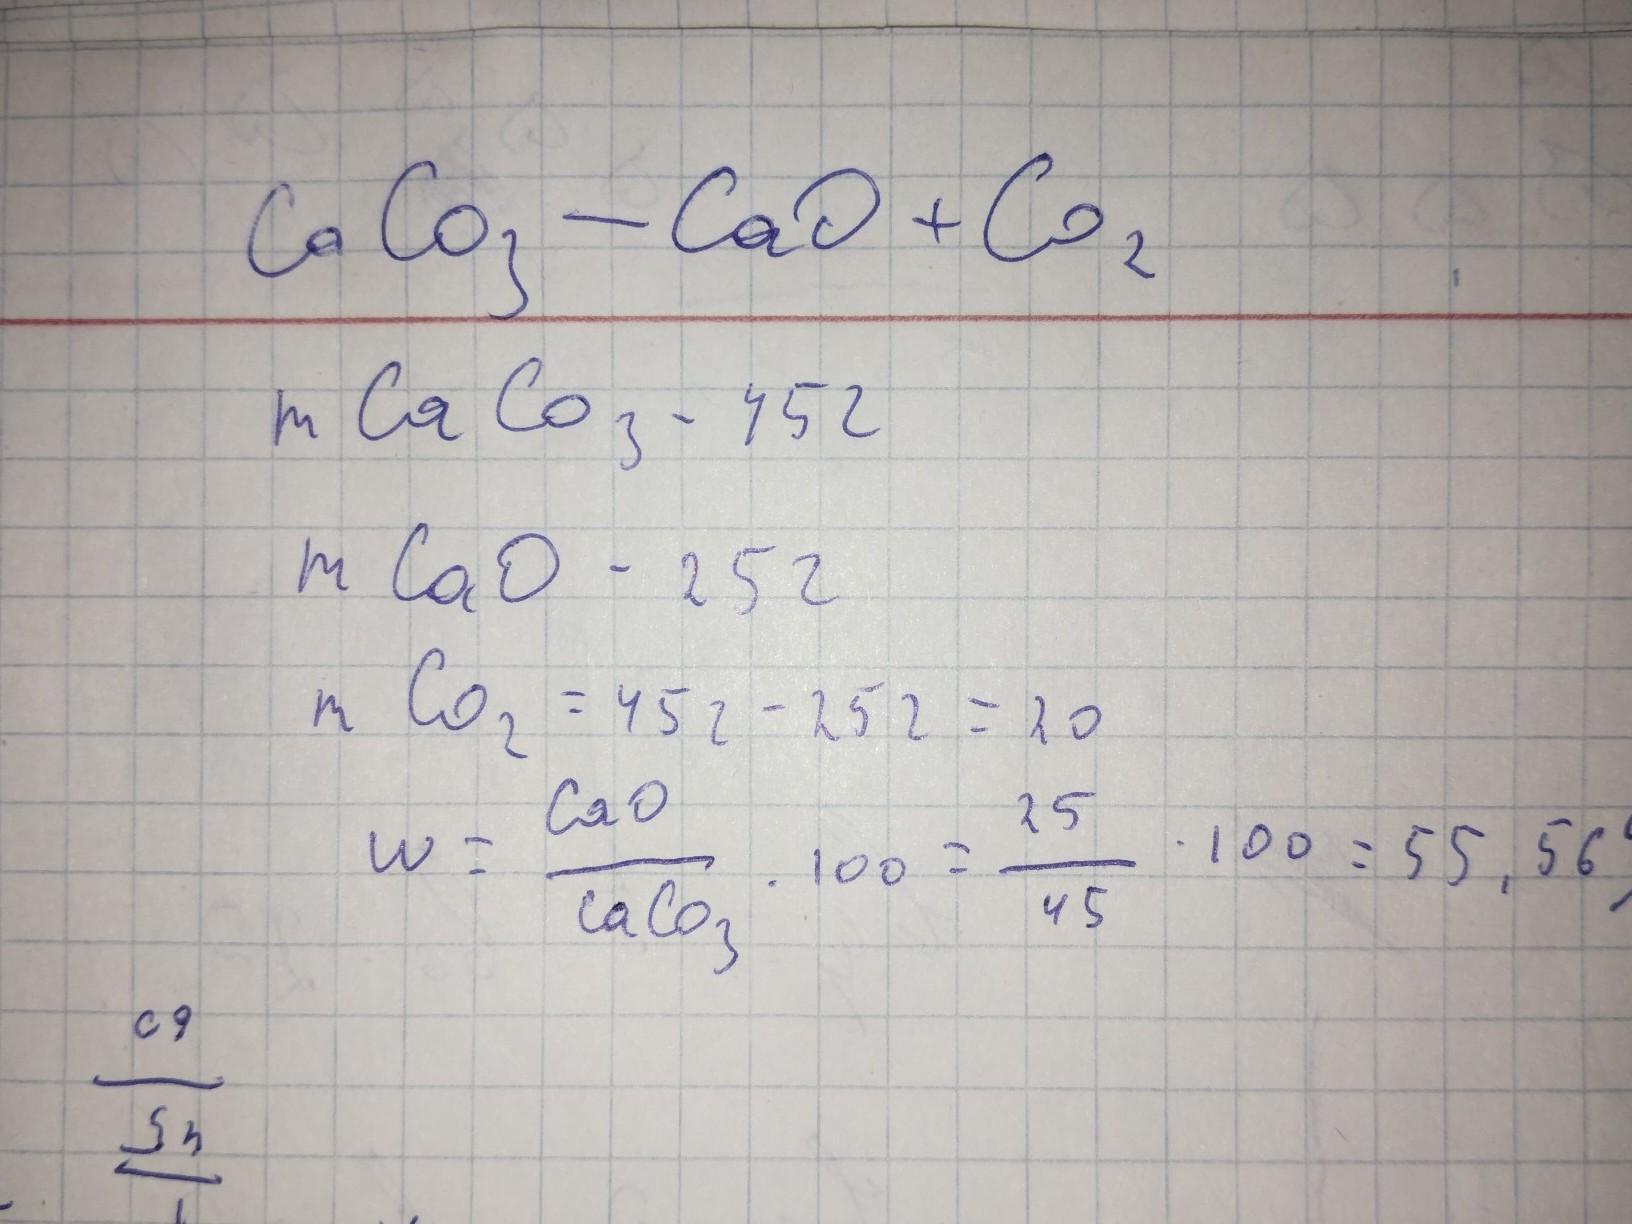 CaCo₃ — CaO + Co₂
m CaCo₃ - 45г
m CaO - 25г
m Co₂ = 45г - 25г = 20
w = CaO / CaCo₃ · 100 = 25 / 45 · 100 = 55,56%